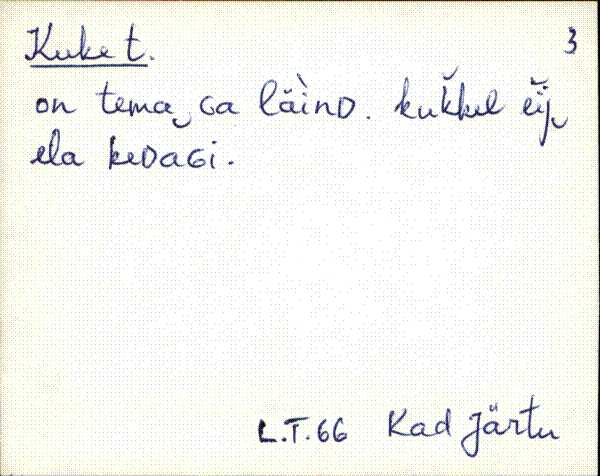 Kuke t. 3
on tema‿ɢa läìnᴅ. kuk̆kel ĕĭj‿
ela keᴅaɢi.
L.T.66 Kad Järtu